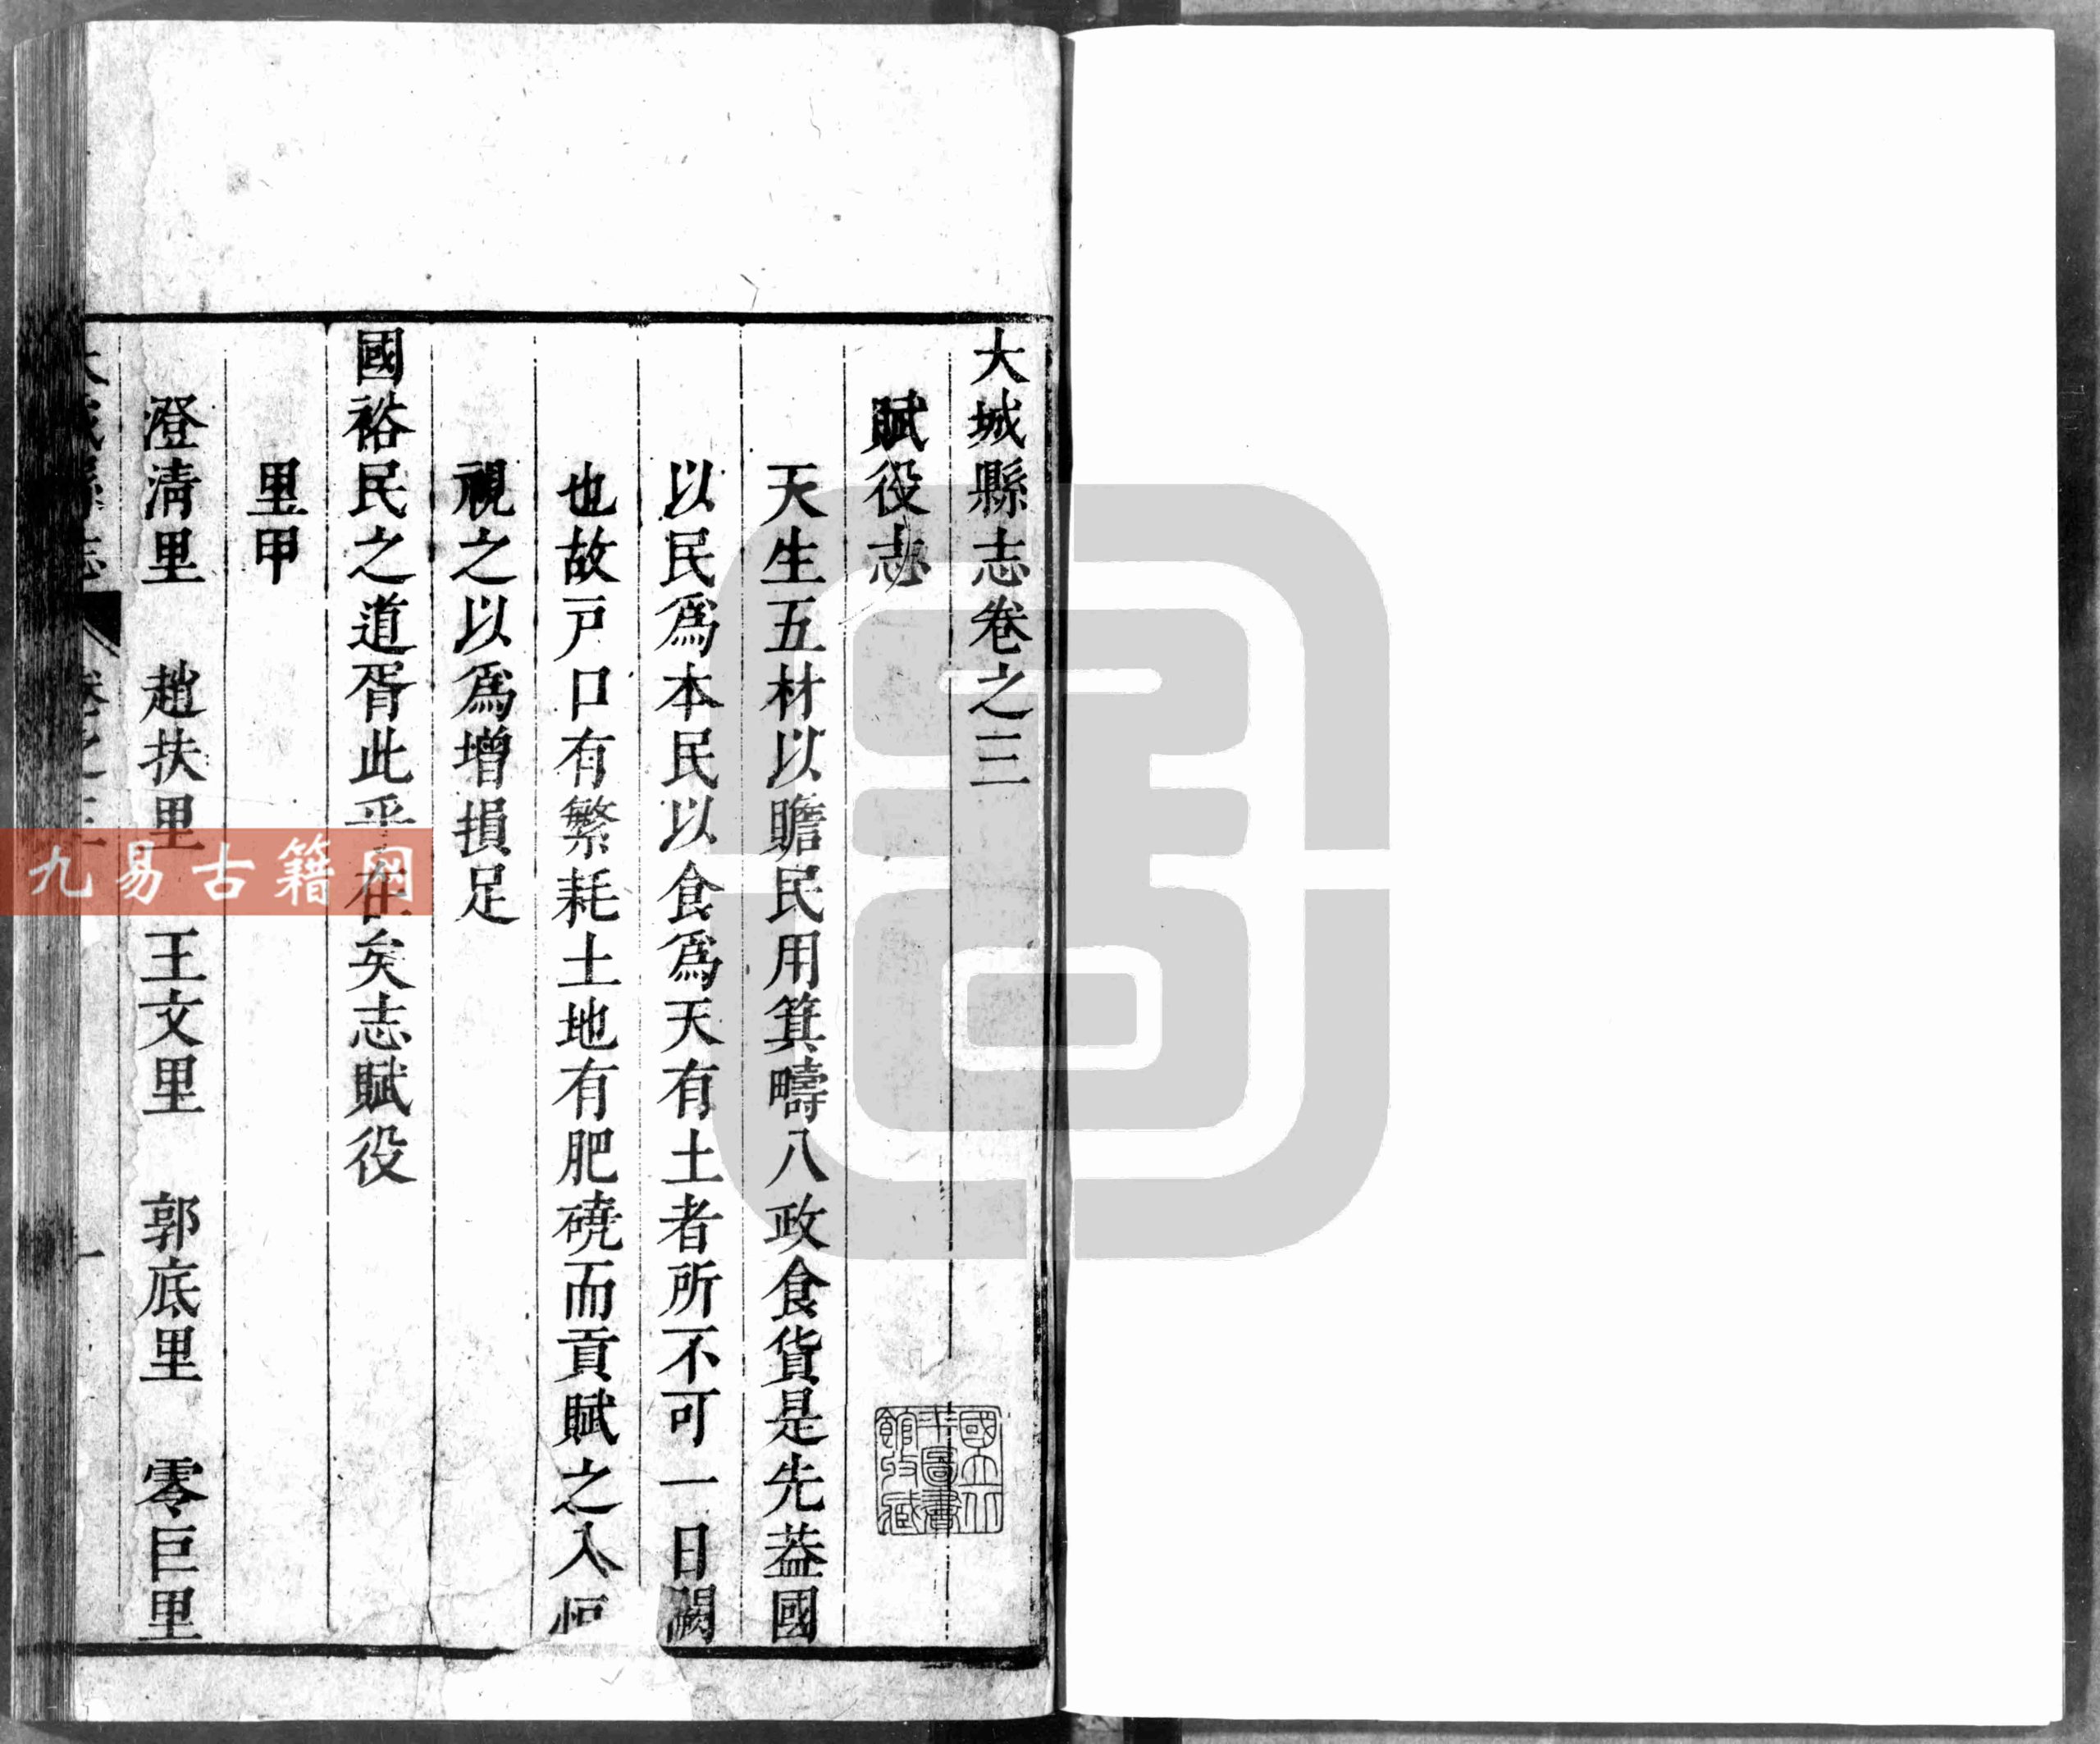 大城縣志卷之三
賦役志
天生五材以贍民用箕疇八政食貨是先葢國
以民爲本民以食爲天有土者所不可一日闕
也故戸口有繁耗土地有肥磽而貢賦之入恒
視之以爲增損足
國裕民之道胥此乎在矣志賦役
里甲
澄清里　趙扶里　王文里　郭底里　零巨里
大城縣志　卷之三　一
國立北平圖書館收藏
九易古籍网